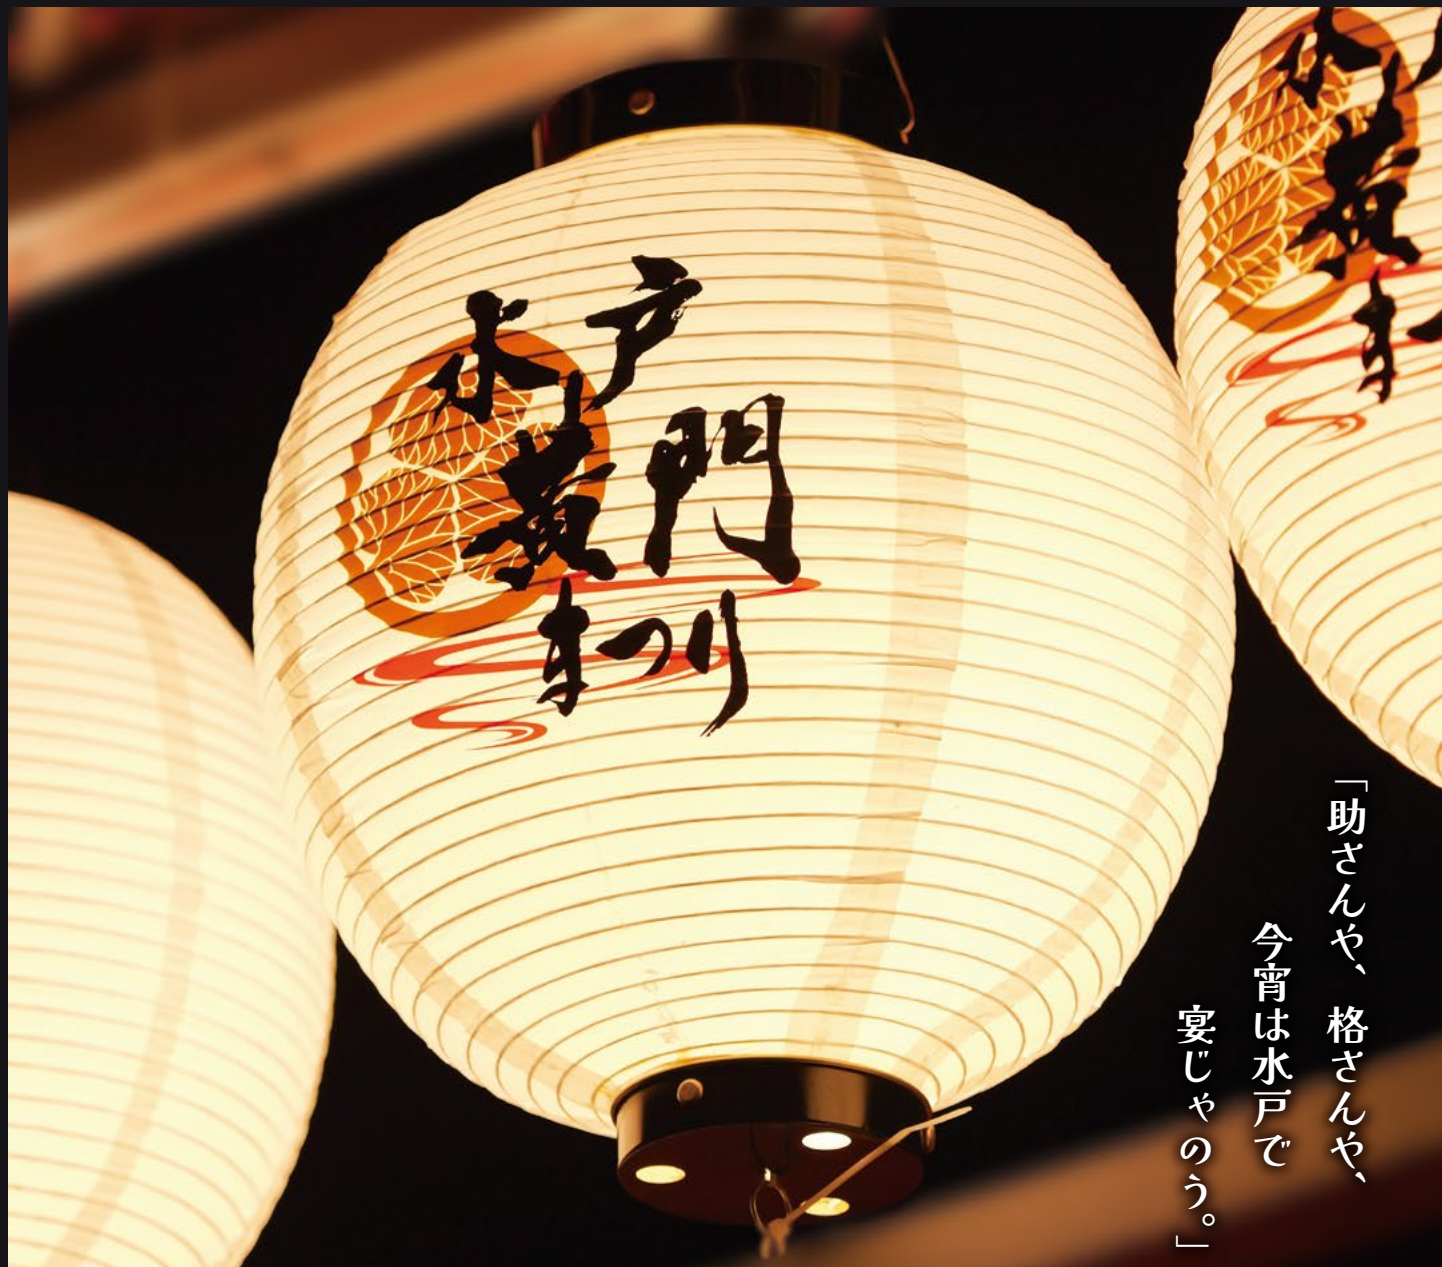 水戸
黄門
まつり
水
黄
ま
「助さんや、格さんや、
今宵は水戸で
宴じゃのう。」